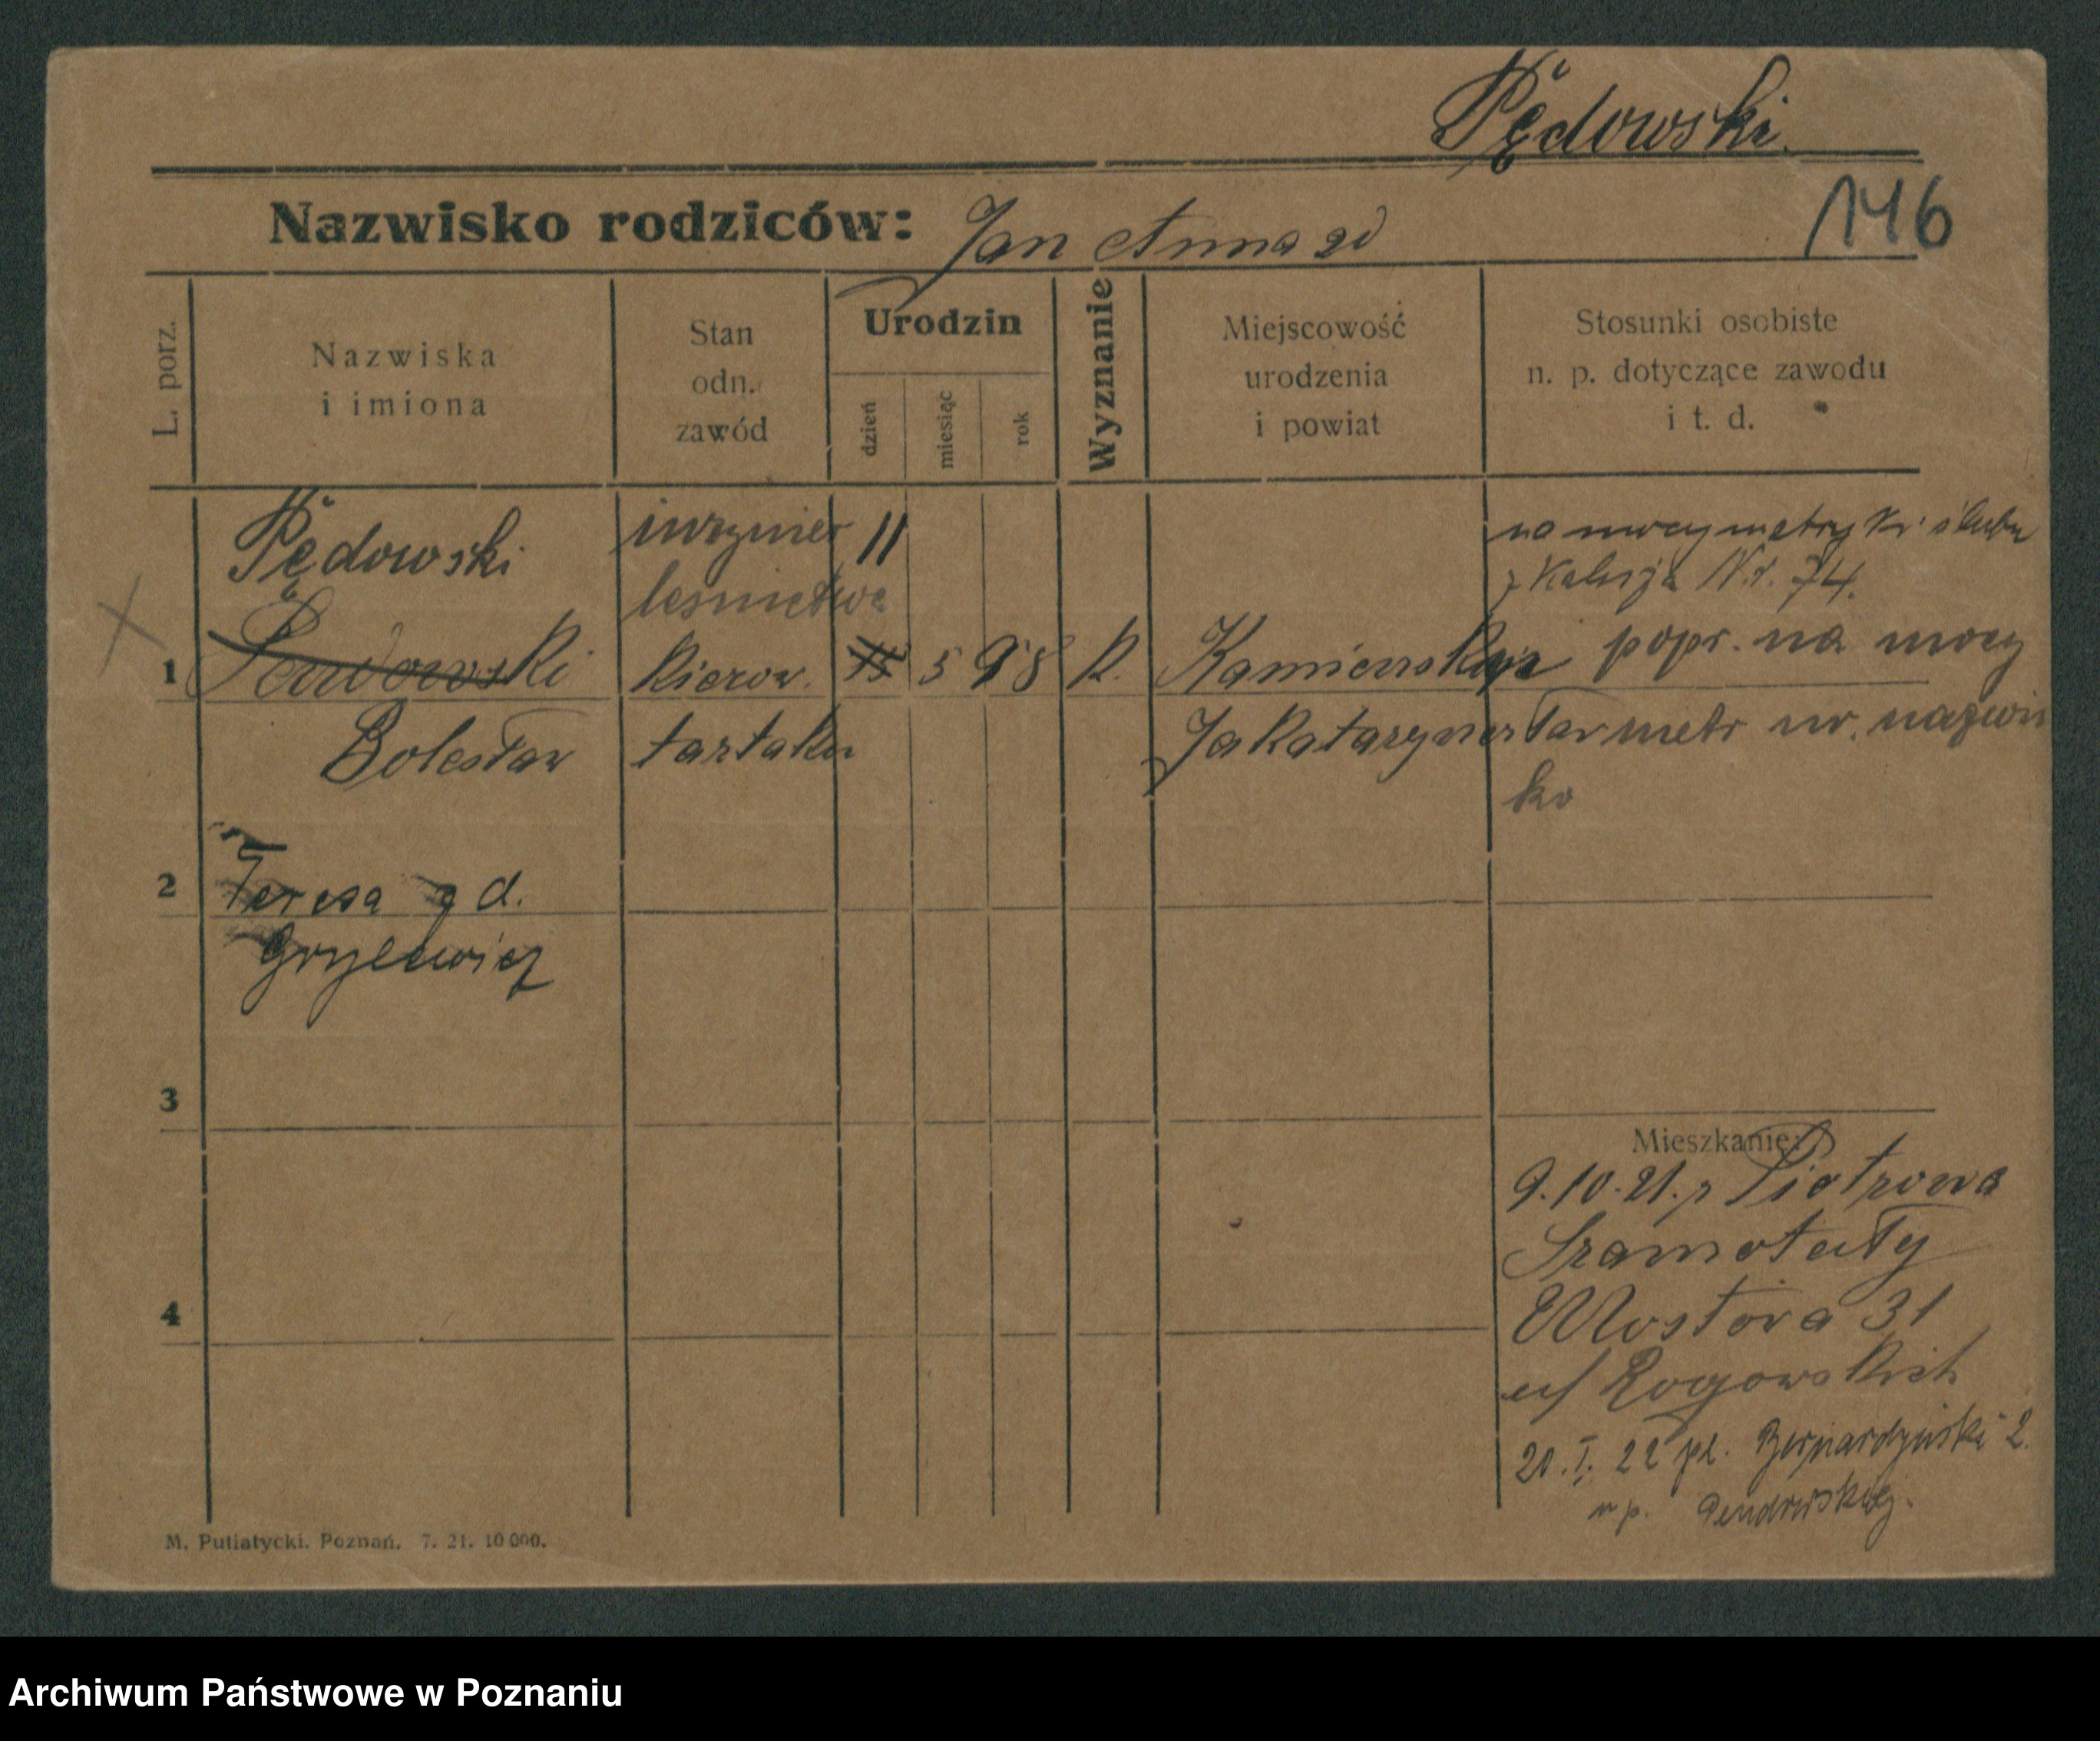 Pędowski
Nazwisko rodziców: Jan Anna zd
146
L. porz.
Nazwiska
i imiona
Stan
odn.
zawód
Urodzin
dzień
miesiąc
rok
Wyznanie
Miejscowość
urodzenia
i powiat
Stosunki osobiste
n. p. dotyczące zawodu
i t. d.
Pędowski inżynier 11 na mocy metryki ślubu
leśnictwa z Kalisza Nr. 74.
1 Pendowski kierow. 15 5 98 k. popr. na mocy
Bolesław tartaku metr ur. nazwis
ko
2 Teresa zd.
Grylewicz
3
Mieszkanie:
9.10.21. z Piotrowa
Szamotuły
4 Mostowa 31
u/ Rogowskich
20. I. 22 pl. Bernardyński 2.
u p. Pendowskiej.
M. Putiatycki. Poznań. 7. 21. 10 000.
Archiwum Państwowe w Poznaniu